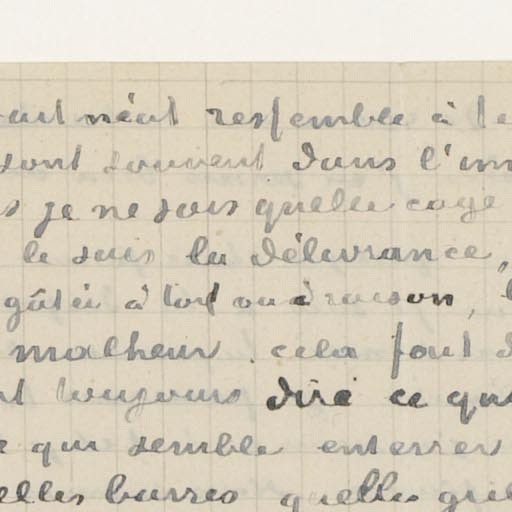 néat ressemble à
sont souvent dans l'im
s je ne sais quelle cage
le sais la délivrance,
gâtée à tort ou à raison,
malheur. cela fait
nt toujours dire ce qu
e qui semble enterrer
elles barres quelles gril